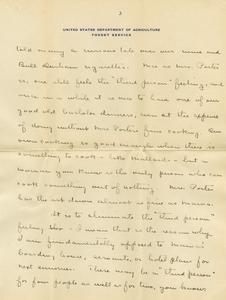 3
UNITED STATES DEPARTMENT OF AGRICULTURE
FOREST SERVICE
told or sung a tale over our wine and
Bull Durham cigarettes. Nice as Mrs. Porter
is, one still feels the "third person" feeling; and
once in a while it is nice to have one of our
good old bachelor dinners, even at the expense
of doing without Mrs. Porter's fine cooking. Our
own cooking is good enough when there is
something to cook - like Mallards - but a
you know is the only person who can
cook something out of nothing. Mrs. Porter
has the art down almost as fine as Mama.
It is to eliminate the "third person"
feeling, - I mean that is the reason why
I am fundamentally opposed to Mama's
boarder, house, servants, or hotel plans for
next summer. There may be a "third person"
for four people as well as for two, you know.